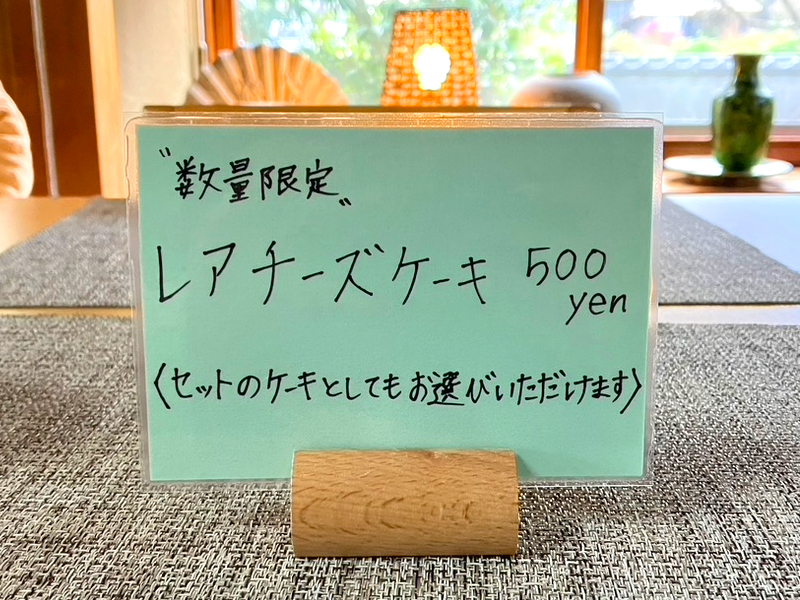 〝数量限定〟
レアチーズケーキ 500
yen
〈セットのケーキとしてもお選びいただけます〉